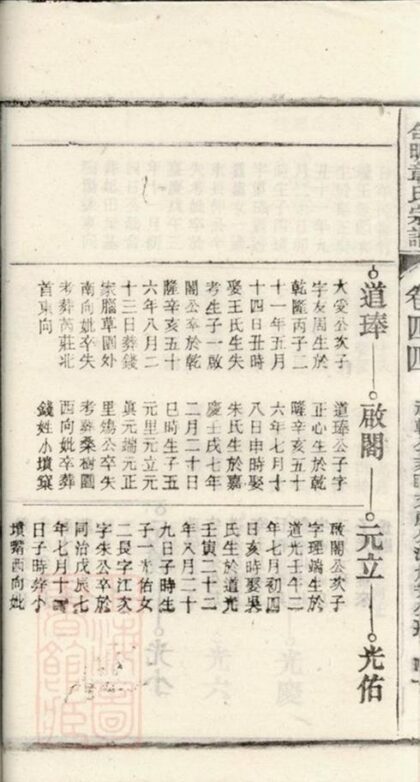 章氏宗譜
卷四四
道琫
啟閣
元立
光佑
大愛公次子
字友周生於
乾隆丙子二
十一年五月
十四日丑時
娶王氏生失
考生子一啟
閣公卒於乾
隆辛亥五十
六年八月二
十三日葬錢
家腦草園外
南向妣卒失
考葬芮莊北
首東向
道琫公子字
正心生於乾
隆辛亥五十
六年七月十
八日申時娶
朱氏生於嘉
慶壬戌七年
二月二十日
巳時生子五
元里元立元
眞元端元正
里鴆公卒失
考葬桑樹園
西向妣卒葬
錢姓小墳窠
啟閣公次子
字理端生於
道光壬午二
年七月初四
日亥時娶吳
氏生於道光
壬寅二十二
年八月二十
九日子時生
子一光佑女
二長字江次
字朱公卒於
同治戊辰七
年七月十四
日子時葬小
墳觜西向妣